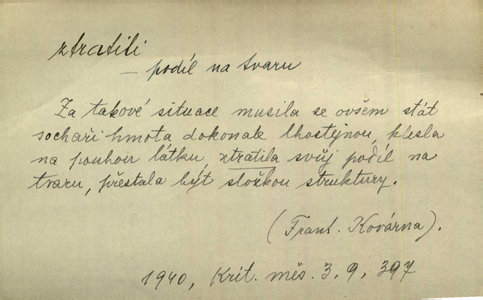 ztratiti
— podíl na tvaru
Za takové situace musila se ovšem stát
sochaři hmota dokonale lhostejnou, klesla
na pouhou látku, ztratila svůj podíl na
tvaru, přestala být složkou struktury.
(Frant. Kovárna).
1940, Krit. měs. 3, 9, 397